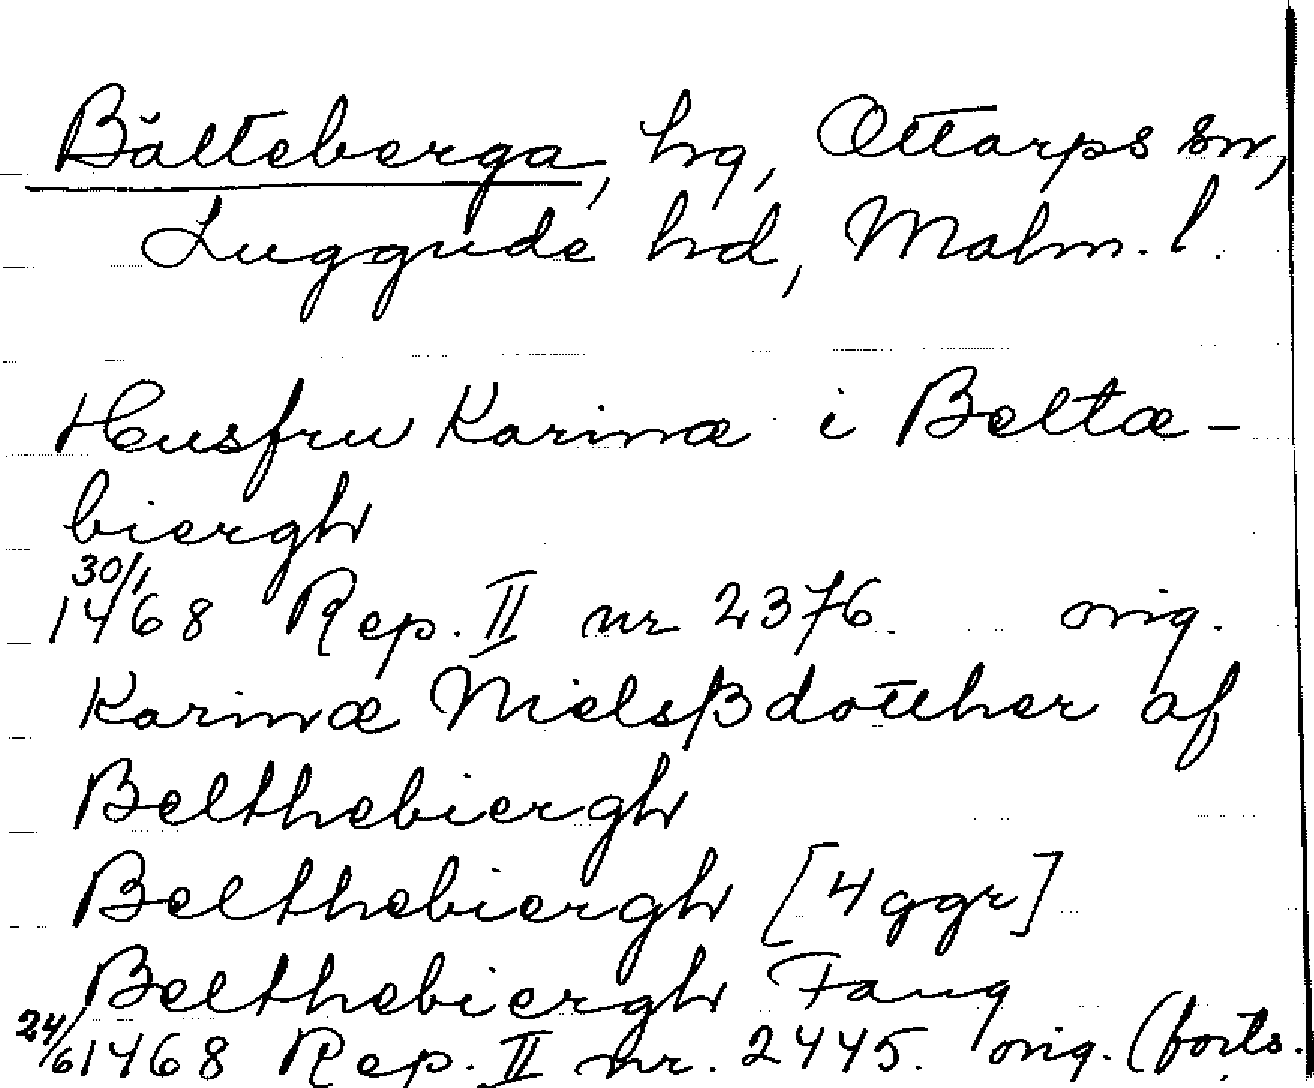 Bälteberga, hg, Ottarps sn,
Luggude hd, Malm. l.
Husfru Karinæ i Beltæ-
biergh
30/1
1468 Rep. II nr 2376. orig.
Karinæ Nielsßdotther af
Belthebiergh
Belthebiergh [4 ggr]
Belthebiergh Fang
24/6 1468 Rep. II nr. 2445. orig. (forts.